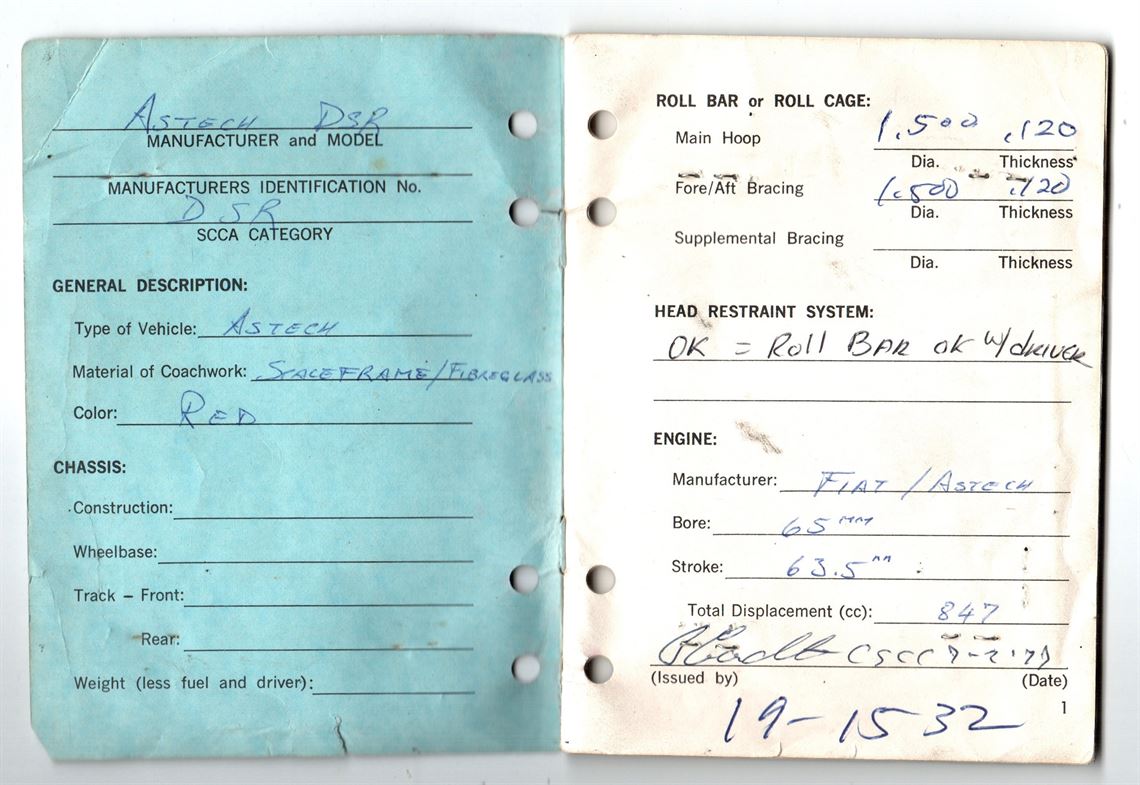 ASTECH DSR
MANUFACTURER and MODEL
MANUFACTURERS IDENTIFICATION No.
DSR
SCCA CATEGORY
GENERAL DESCRIPTION:
Type of Vehicle: ASTECH
Material of Coachwork: SPACEFRAME/FIBREGLASS
Color: RED
CHASSIS:
Construction:
Wheelbase:
Track – Front:
Rear:
Weight (less fuel and driver):
ROLL BAR or ROLL CAGE:
Main Hoop 1.500 .120
Dia. Thickness
Fore/Aft Bracing 1.500 .120
Dia. Thickness
Supplemental Bracing
Dia. Thickness
HEAD RESTRAINT SYSTEM:
OK = ROLL BAR OK W/DRIVER
ENGINE:
Manufacturer: FIAT / ASTECH
Bore: 65 MM
Stroke: 63.5 MM
Total Displacement (cc): 847
CSCC
(Issued by) (Date)
1
19-1532